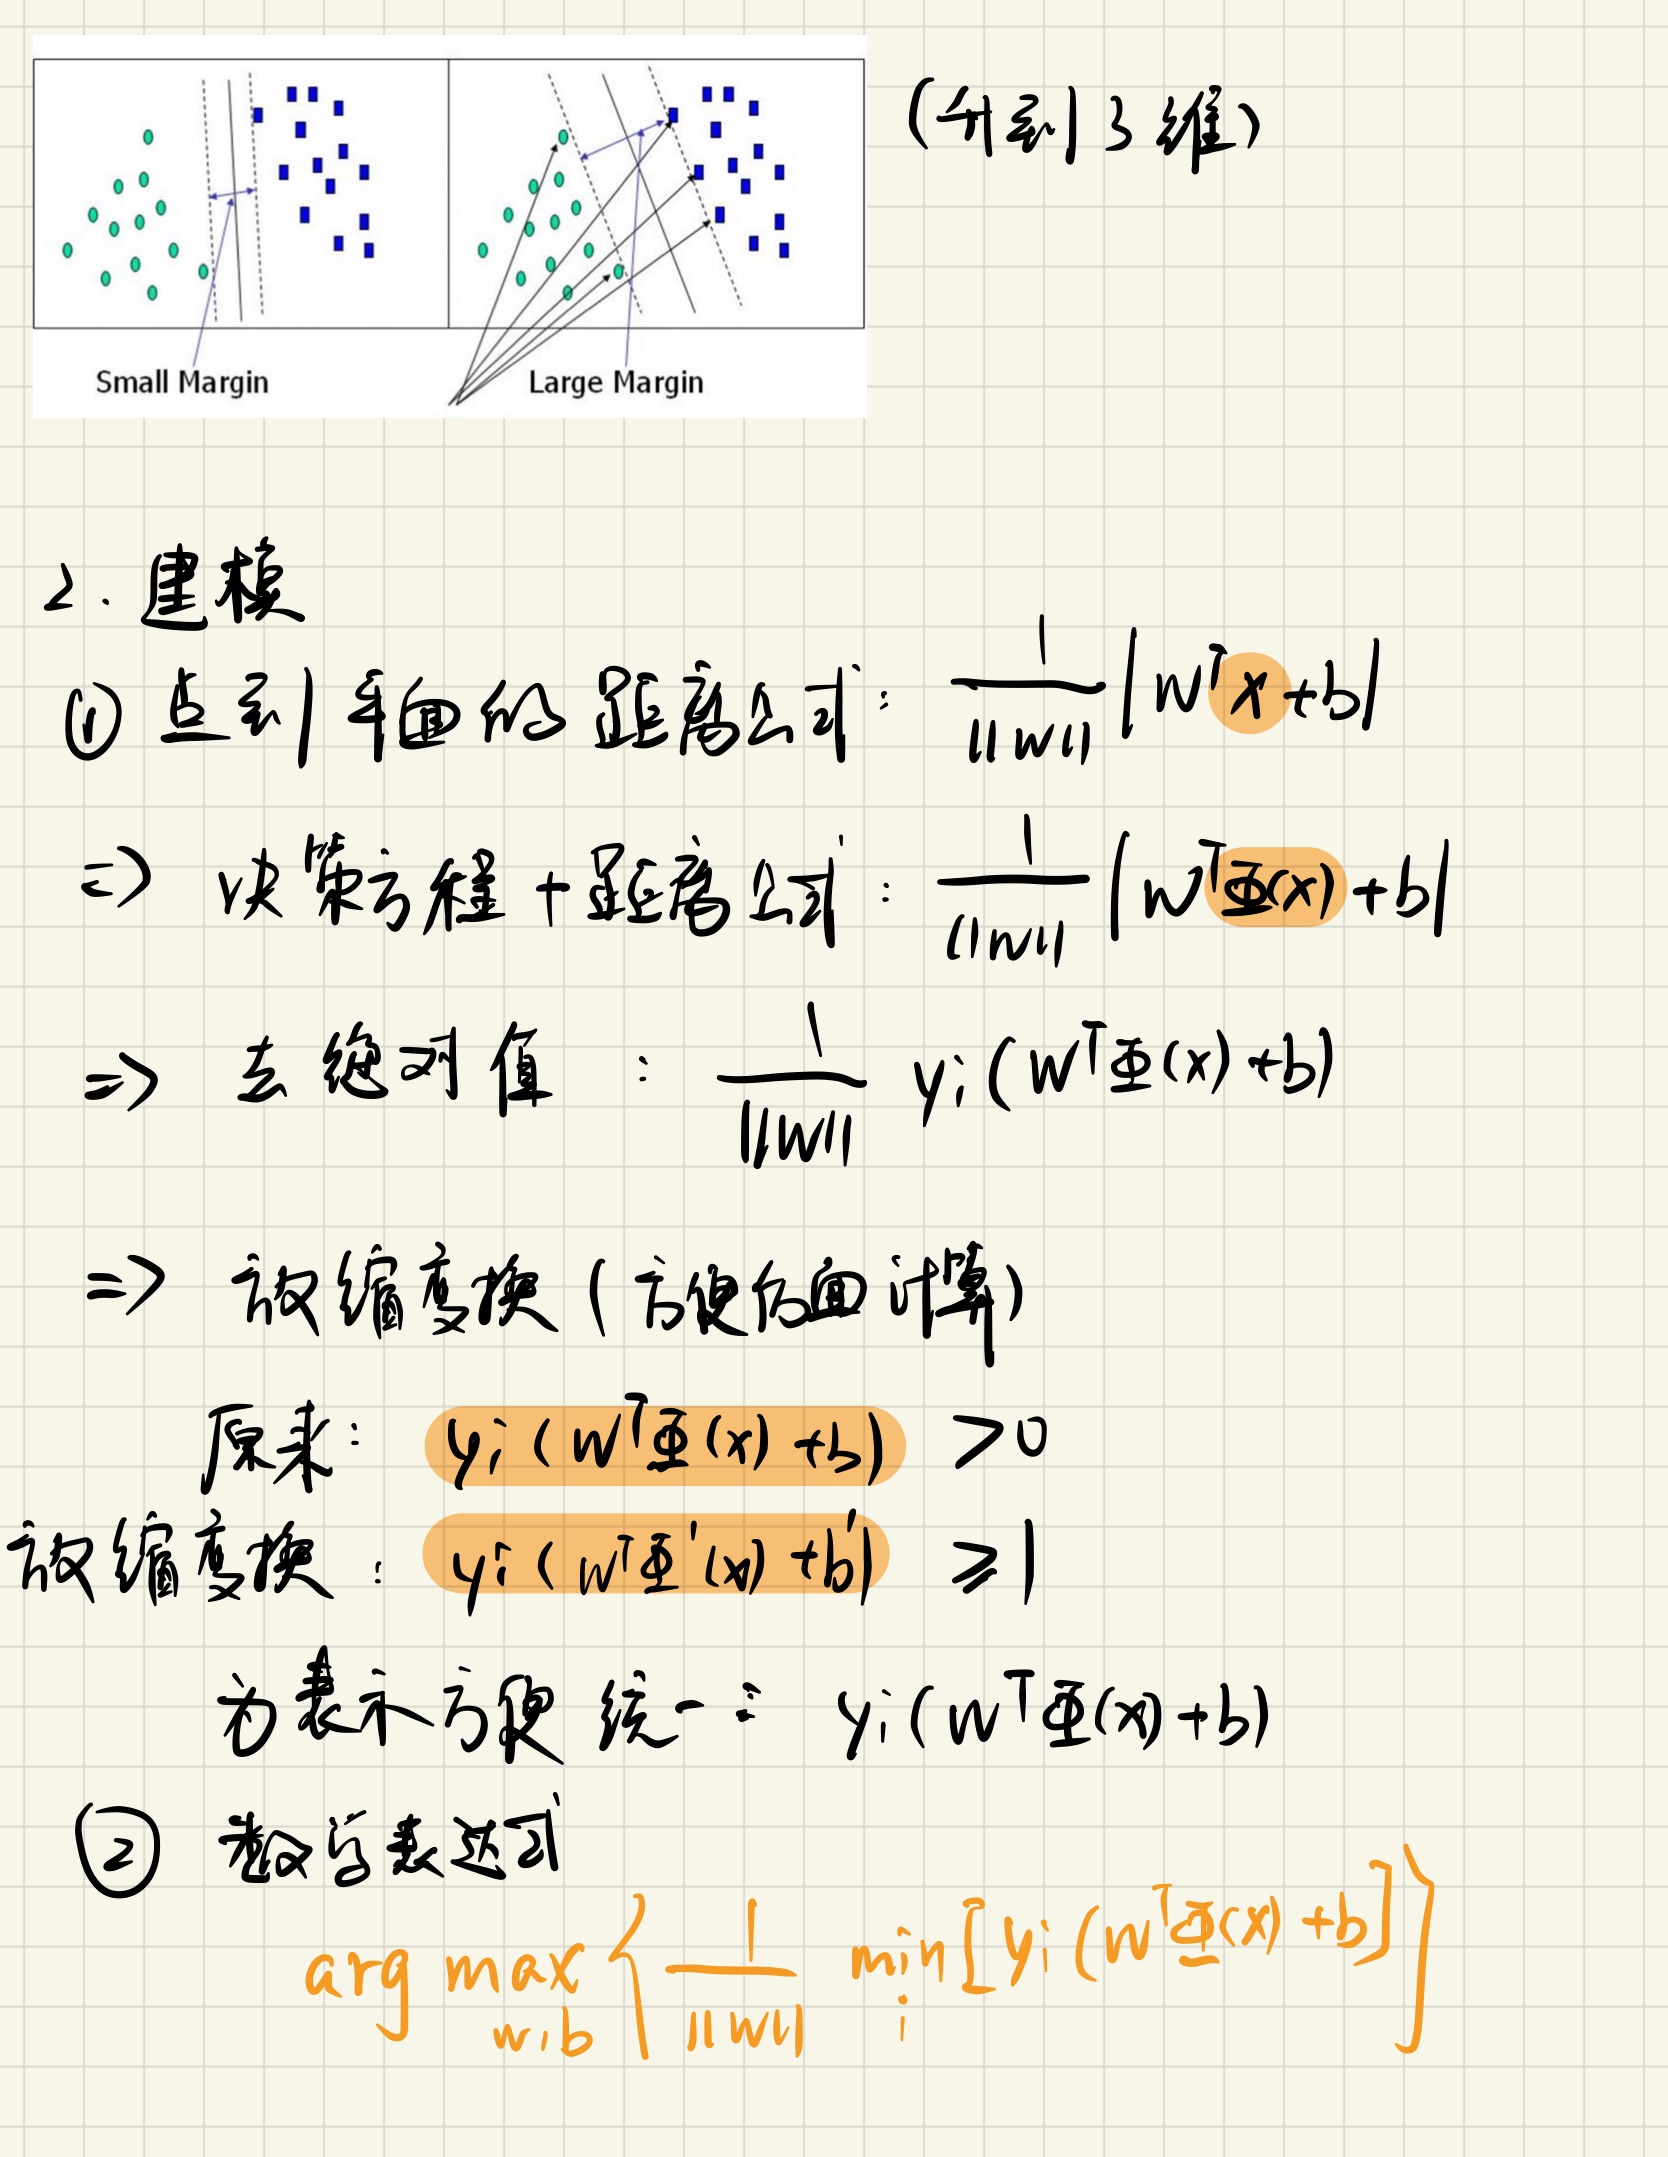 (升到3维)
Small Margin
Large Margin
2. 建模
① 点到平面的距离公式: 1/||W|| |Wᵀx+b|
=> 决策方程 + 距离公式: 1/||W|| |WᵀΦ(x)+b|
=> 去绝对值 : 1/||W|| yi(WᵀΦ(x)+b)
=> 放缩变换(方便后面计算)
原来: yi(WᵀΦ(x)+b) >0
放缩变换: yi(WᵀΦ'(x)+b') ≥1
为表示方便统一: yi(WᵀΦ(x)+b)
② 数学表达式
arg max w,b { 1/||W|| min i [yi(WᵀΦ(x)+b] }